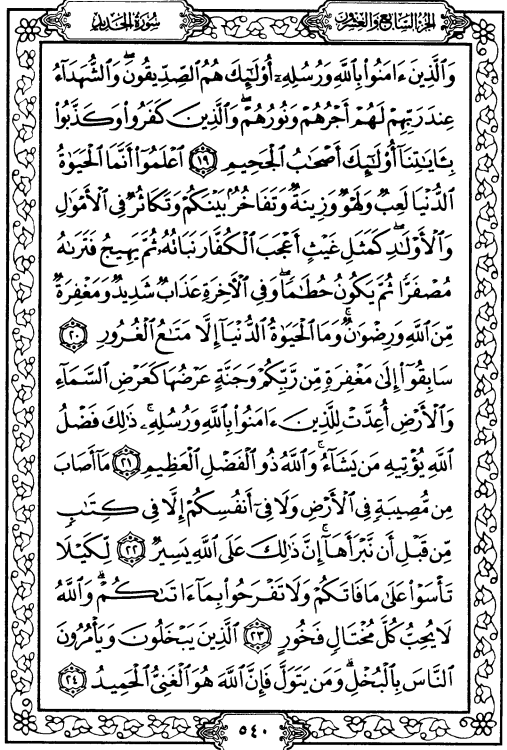 الجزء السابع والعشرون
سورة الحديد
وَالَّذِينَ ءَامَنُوا۟ بِاللَّهِ وَرُسُلِهِۦٓ أُو۟لَـٰٓئِكَ هُمُ الصِّدِّيقُونَ ۖ وَالشُّهَدَآءُ
عِندَ رَبِّهِمْ لَهُمْ أَجْرُهُمْ وَنُورُهُمْ ۖ وَالَّذِينَ كَفَرُوا۟ وَكَذَّبُوا۟
بِـَٔايَـٰتِنَآ أُو۟لَـٰٓئِكَ أَصْحَـٰبُ الْجَحِيمِ ١٩ اعْلَمُوٓا۟ أَنَّمَا الْحَيَوٰةُ
الدُّنْيَا لَعِبٌ وَلَهْوٌ وَزِينَةٌ وَتَفَاخُرٌۢ بَيْنَكُمْ وَتَكَاثُرٌ فِى الْأَمْوَٰلِ
وَالْأَوْلَـٰدِ ۖ كَمَثَلِ غَيْثٍ أَعْجَبَ الْكُفَّارَ نَبَاتُهُۥ ثُمَّ يَهِيجُ فَتَرَىٰهُ
مُصْفَرًّا ثُمَّ يَكُونُ حُطَـٰمًا ۖ وَفِى الْـَٔاخِرَةِ عَذَابٌ شَدِيدٌ وَمَغْفِرَةٌ
مِّنَ اللَّهِ وَرِضْوَٰنٌ ۚ وَمَا الْحَيَوٰةُ الدُّنْيَآ إِلَّا مَتَـٰعُ الْغُرُورِ ٢٠
سَابِقُوٓا۟ إِلَىٰ مَغْفِرَةٍ مِّن رَّبِّكُمْ وَجَنَّةٍ عَرْضُهَا كَعَرْضِ السَّمَآءِ
وَالْأَرْضِ أُعِدَّتْ لِلَّذِينَ ءَامَنُوا۟ بِاللَّهِ وَرُسُلِهِۦ ۚ ذَٰلِكَ فَضْلُ
اللَّهِ يُؤْتِيهِ مَن يَشَآءُ ۚ وَاللَّهُ ذُو الْفَضْلِ الْعَظِيمِ ٢١ مَآ أَصَابَ
مِن مُّصِيبَةٍ فِى الْأَرْضِ وَلَا فِىٓ أَنفُسِكُمْ إِلَّا فِى كِتَـٰبٍ
مِّن قَبْلِ أَن نَّبْرَأَهَآ ۚ إِنَّ ذَٰلِكَ عَلَى اللَّهِ يَسِيرٌ ٢٢ لِّكَيْلَا
تَأْسَوْا۟ عَلَىٰ مَا فَاتَكُمْ وَلَا تَفْرَحُوا۟ بِمَآ ءَاتَىٰكُمْ ۗ وَاللَّهُ
لَا يُحِبُّ كُلَّ مُخْتَالٍ فَخُورٍ ٢٣ الَّذِينَ يَبْخَلُونَ وَيَأْمُرُونَ
النَّاسَ بِالْبُخْلِ ۗ وَمَن يَتَوَلَّ فَإِنَّ اللَّهَ هُوَ الْغَنِىُّ الْحَمِيدُ ٢٤
٥٤٠